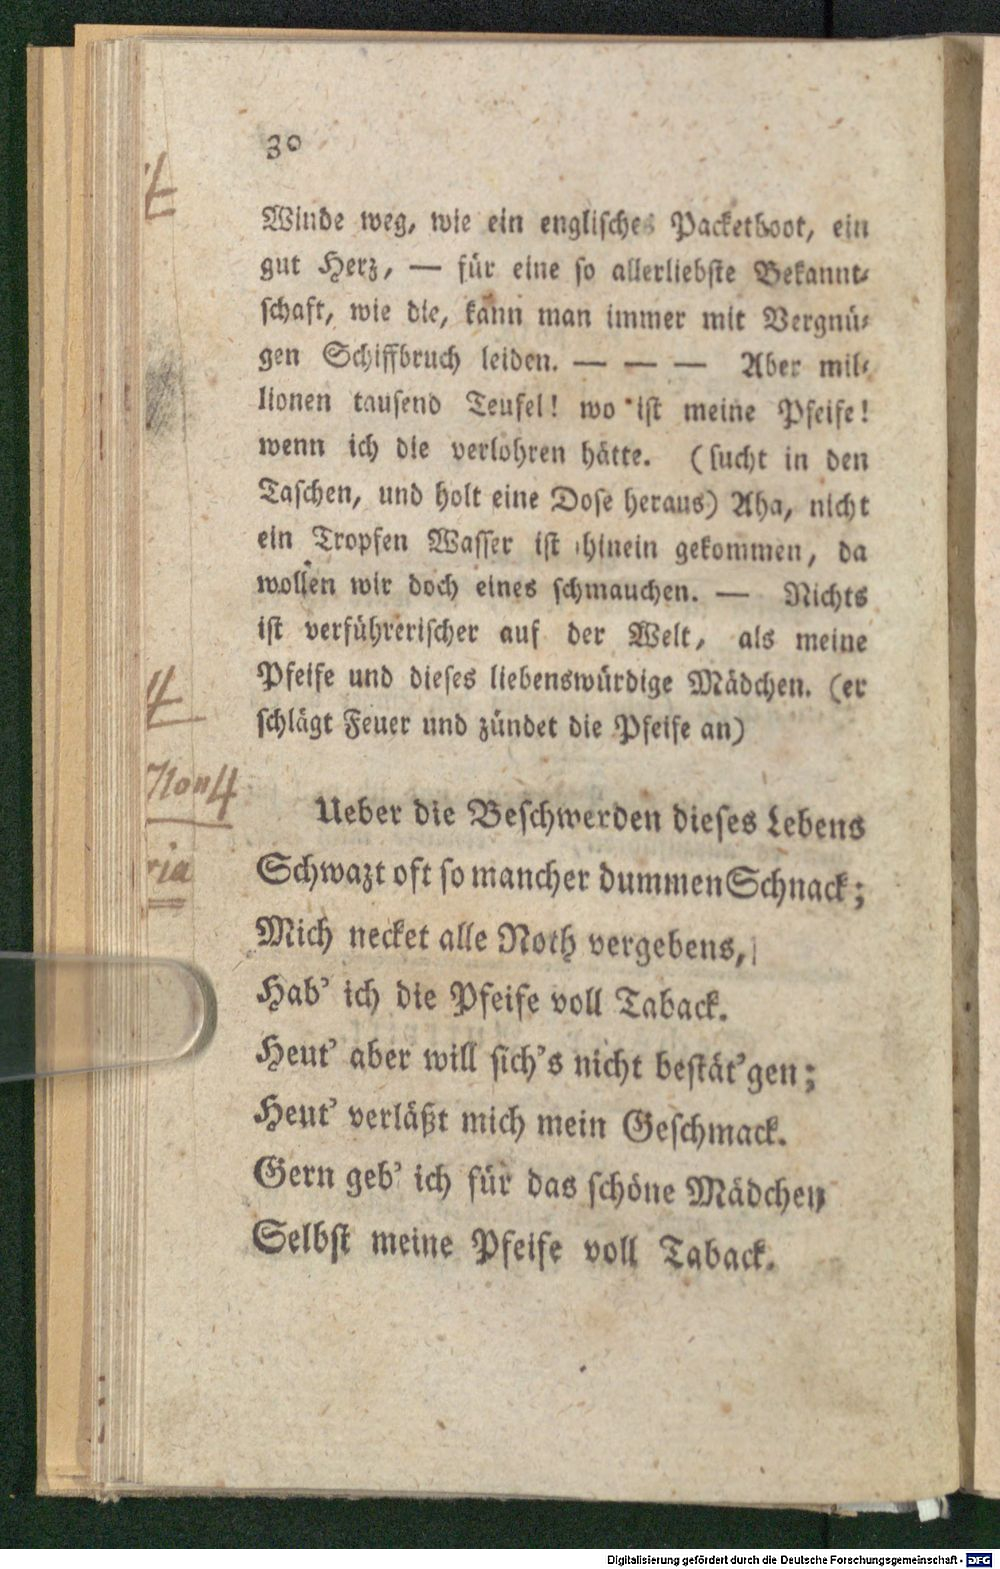 30
Winde weg, wie ein englisches Packetboot, ein
gut Herz, — für eine so allerliebste Bekannt-
schaft, wie die, kann man immer mit Vergnü-
gen Schiffbruch leiden. — — — Aber mil-
lionen tausend Teufel! wo ist meine Pfeife!
wenn ich die verlohren hätte. (sucht in den
Taschen, und holt eine Dose heraus) Aha, nicht
ein Tropfen Wasser ist hinein gekommen, da
wollen wir doch eines schmauchen. — Nichts
ist verführerischer auf der Welt, als meine
Pfeife und dieses liebenswürdige Mädchen. (er
schlägt Feuer und zündet die Pfeife an)
Non 4
ria
Ueber die Beschwerden dieses Lebens
Schwazt oft so mancher dummen Schnack;
Mich necket alle Noth vergebens,
Hab' ich die Pfeife voll Taback.
Heut' aber will sich's nicht bestät'gen;
Heut' verläßt mich mein Geschmack.
Gern geb' ich für das schöne Mädchen
Selbst meine Pfeife voll Taback.
Digitalisierung gefördert durch die Deutsche Forschungsgemeinschaft - DFG